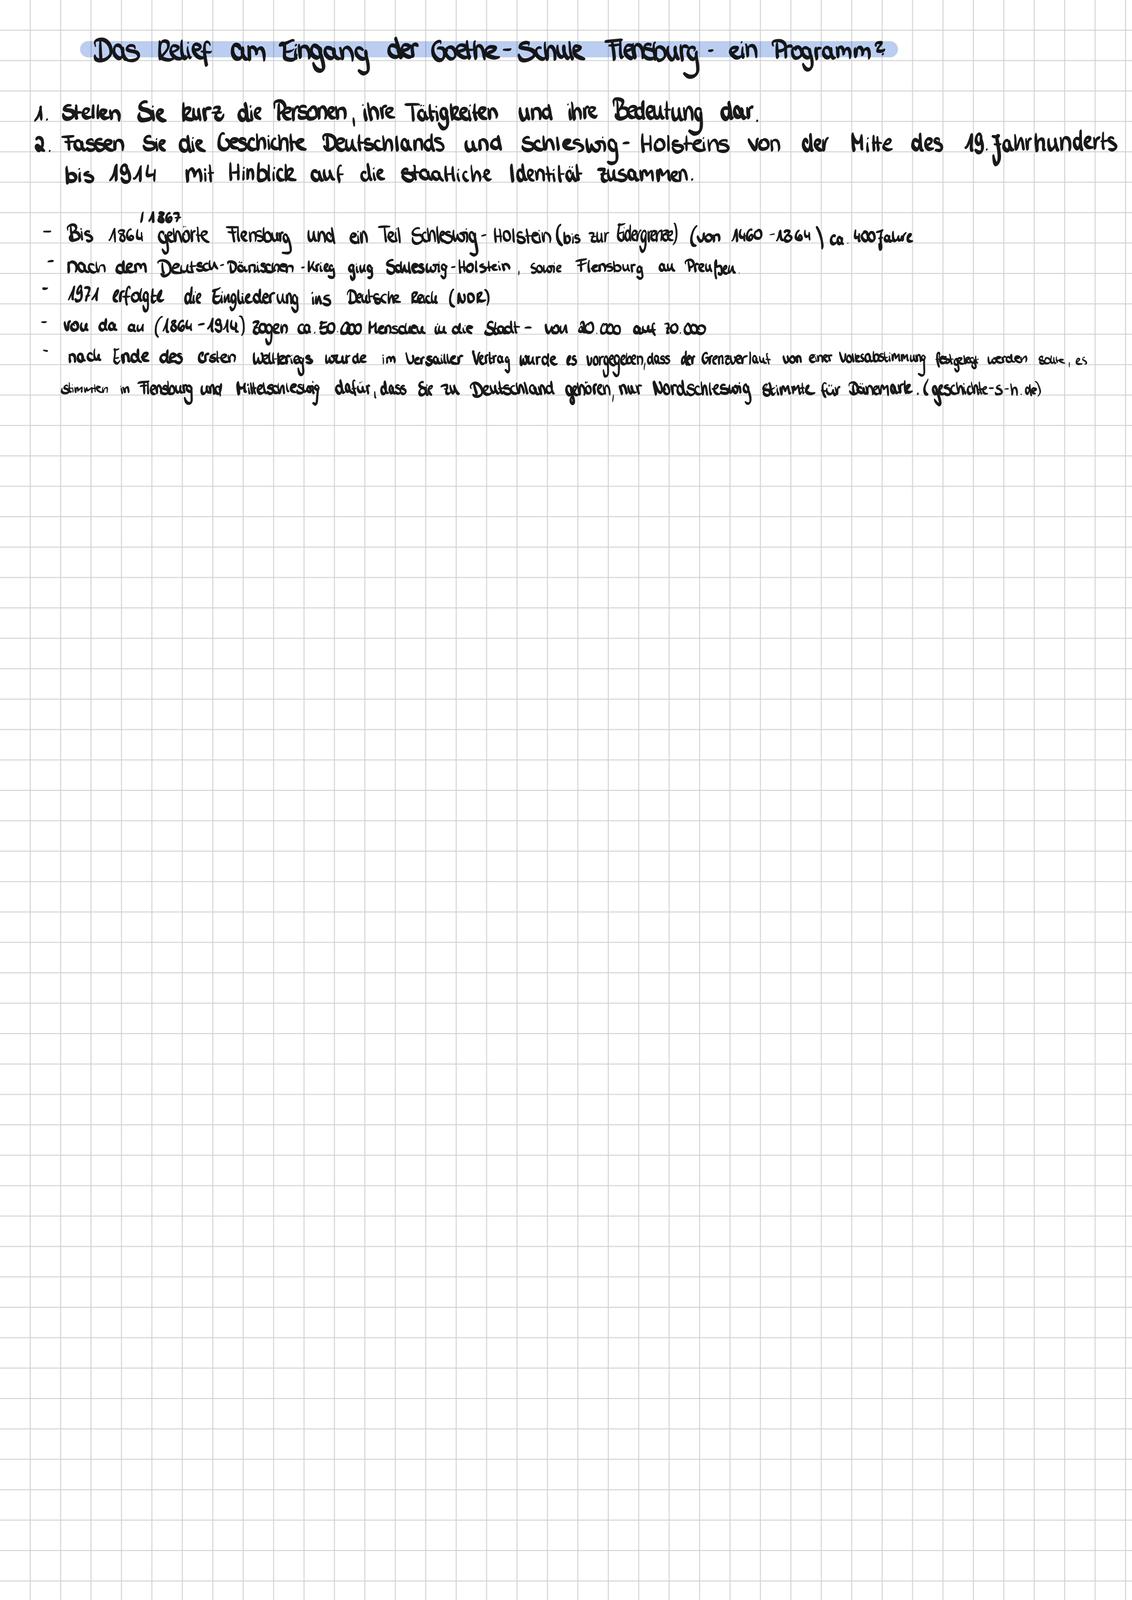 Das Relief am Eingang der Goethe-Schule Flensburg - ein Programm?
1. Stellen Sie kurz die Personen, ihre Tätigkeiten und ihre Bedeutung dar.
2. Fassen Sie die Geschichte Deutschlands und Schleswig-Holsteins von der Mitte des 19. Jahrhunderts
bis 1914 mit Hinblick auf die staatliche Identität zusammen.
/1867
- Bis 1864 gehörte Flensburg und ein Teil Schleswig-Holstein (bis zur Eidergrenze) (von 1460-1864) ca. 400 Jahre
- nach dem Deutsch-Dänischen-Krieg ging Schleswig-Holstein, sowie Flensburg an Preußen.
- 1971 erfolgte die Eingliederung ins Deutsche Reich (NDR)
- von da an (1864-1914) zogen ca. 50.000 Menschen in die Stadt - von 20.000 auf 70.000
- nach Ende des ersten Weltkriegs wurde im Versailler Vertrag wurde es vorgegeben, dass der Grenzverlauf von einer Volksabstimmung festgelegt werden sollte, es
stimmten in Flensburg und Mittelschleswig dafür, dass Sie zu Deutschland gehören, nur Nordschleswig stimmte für Dänemark. (geschichte-s-h.de)